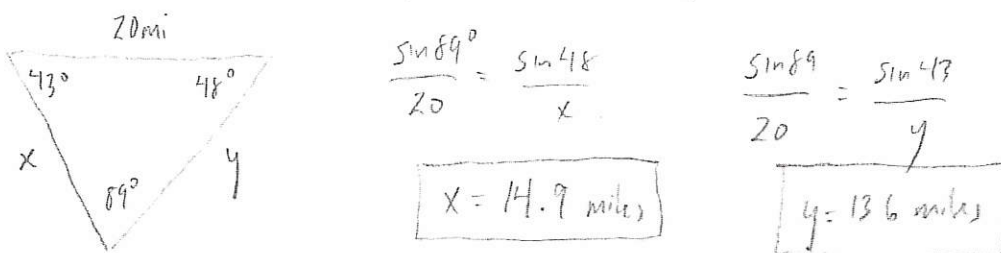 20mi
43° 48°
x y
89°
sin89° / 20 = sin48 / x
x = 14.9 miles
sin89 / 20 = sin43 / y
y = 13.6 miles